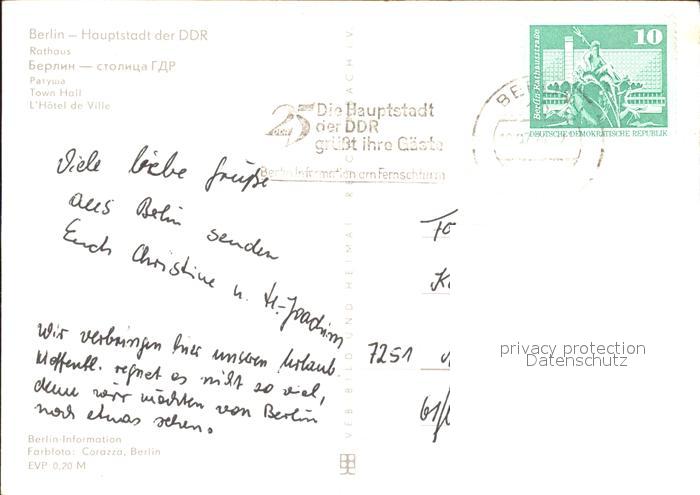 Berlin – Hauptstadt der DDR
Rathaus
Берлин — столица ГДР
Ратуша
Town Hall
L'Hôtel de Ville
25 Die Hauptstadt
der DDR
grüßt ihre Gäste
Berlin-Information am Fernsehturm
BER
Berlin, Rathausstraße
10
DEUTSCHE DEMOKRATISCHE REPUBLIK
Viele liebe Grüße
aus Berlin senden
Euch Christine u. H.-Joachim
Wir verbringen hier unseren Urlaub.
Hoffentl. regnet es nicht so viel,
denn wir möchten von Berlin
noch etwas sehen.
7251
61/
privacy protection
Datenschutz
VEB BILD UND HEIMAT
Berlin-Information
Farbfoto: Corazza, Berlin
EVP 0,20 M